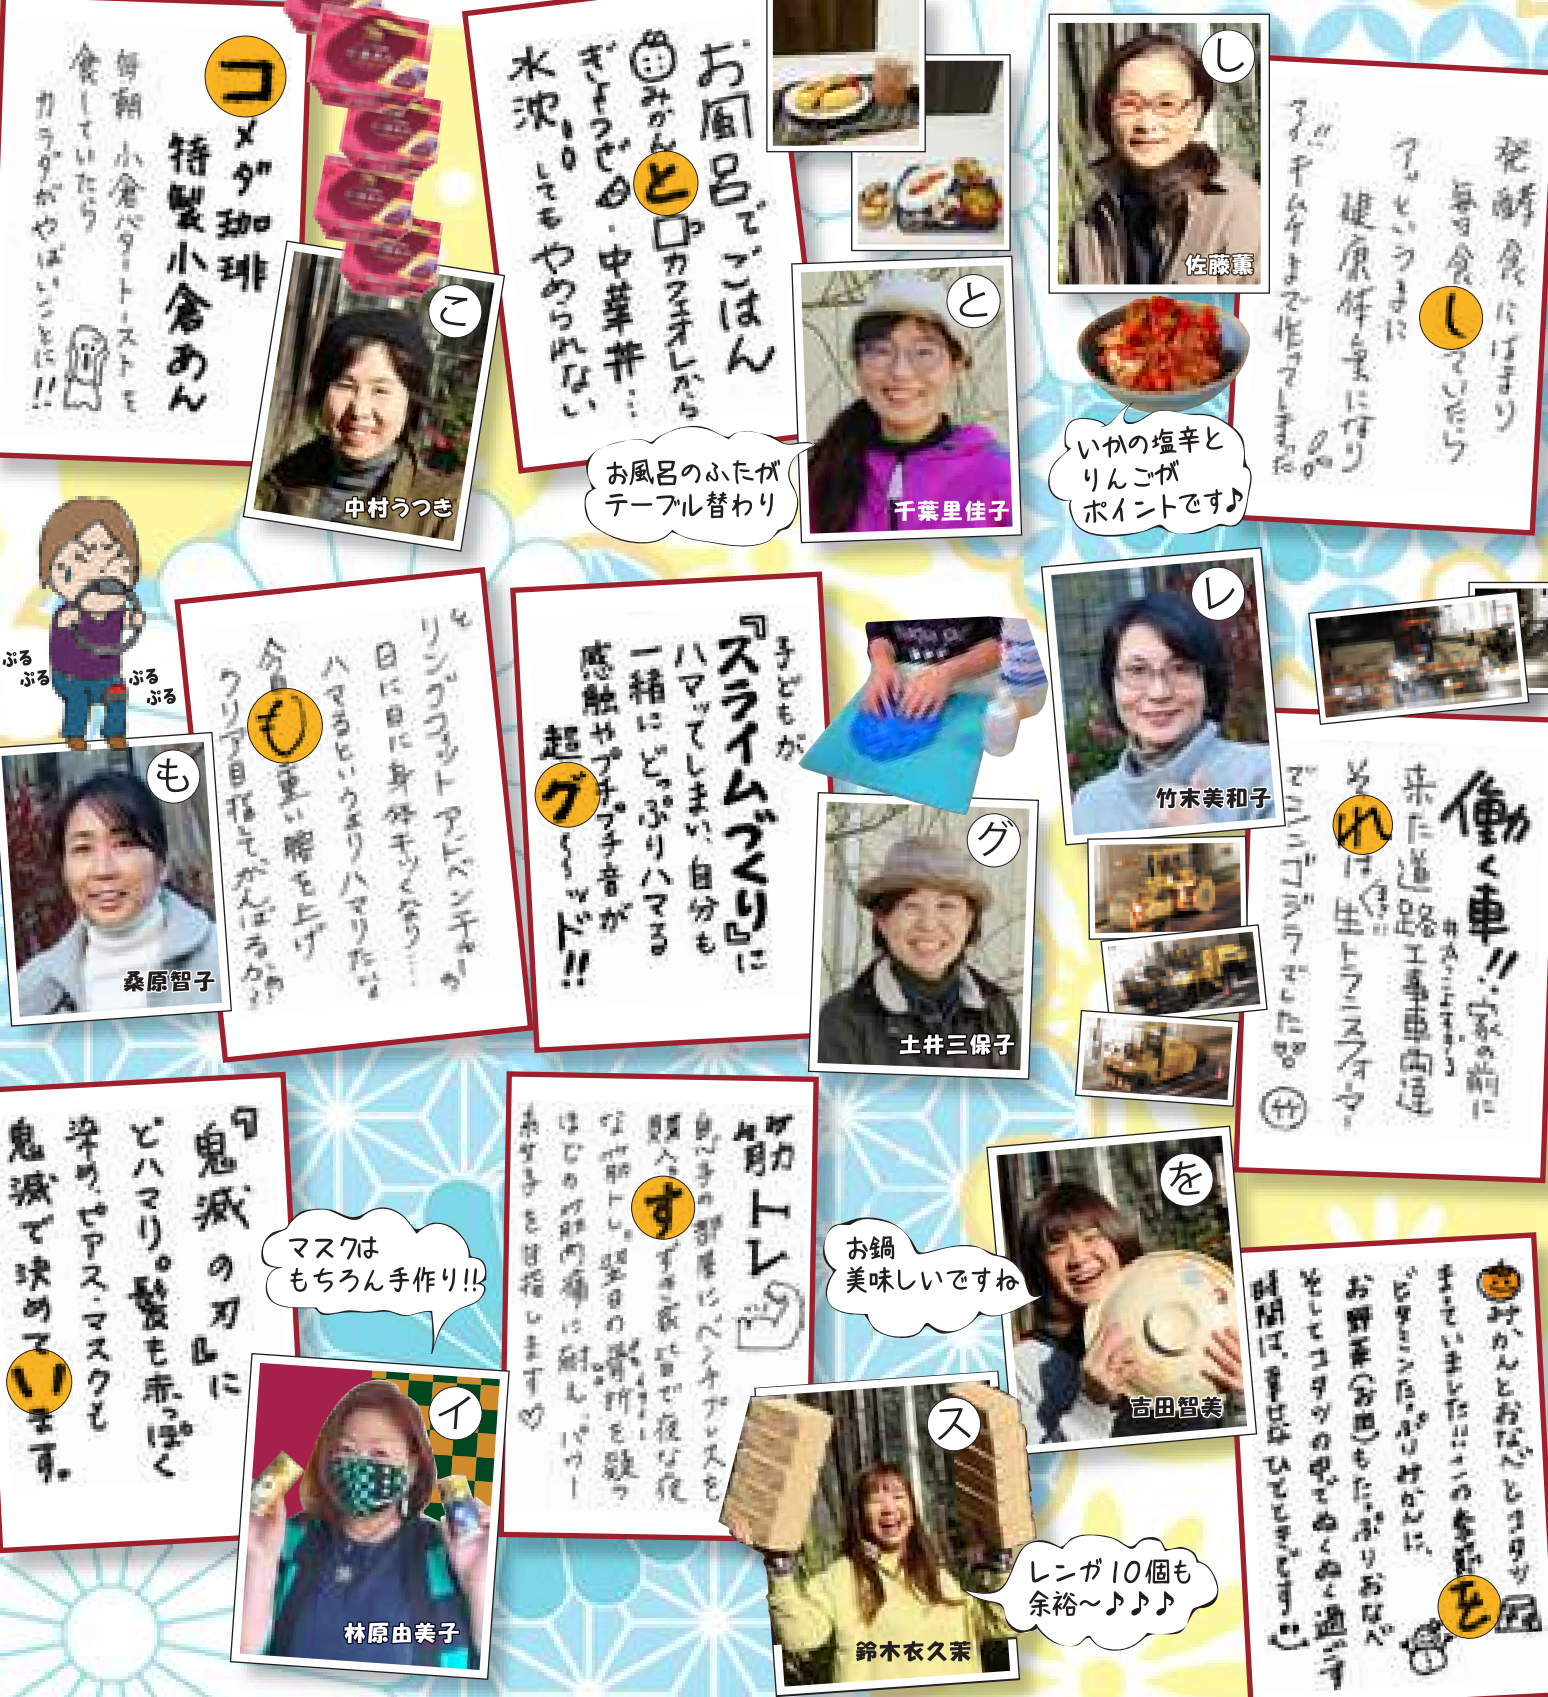 コメダ珈琲
特製小倉あん
毎朝 小倉バタートーストを
食していたら
カラダがやばいことに!!
こ
中村うつき
お風呂でごはん
みかんとカフェオレから
ぎょうざ・中華丼…
水沈してもやめられない
と
千葉里佳子
お風呂のふたが
テーブル替わり
し
佐藤薫
いかの塩辛と
りんごが
ポイントです♪
発酵食にはまり
毎日食していたら
アッというまに
健康体重になり
マイ!!キムチまで作ってしまった
ぷるぷる
ぷるぷる
も
桑原智子
リングフィット アドベンチャー
日に日に身体キツくなり…
ハマるというよりハマりたい
今日も重い腰を上げ
クリア目指してがんばるか
子どもが
『スライムづくり』に
ハマッてしまい、自分も
一緒にどっぷりハマる
感触やプチプチ音が
超グ～～ッド!!
グ
土井三保子
レ
竹末美和子
働く車!!家の前に
来た道路工事車両達
それは生トランスフォーマー
でシンゴジラでした
竹
『鬼滅の刃』に
どハマり。髪も赤っぽく
染め、ピアス・マスクも
鬼滅で決めています。
マスクは
もちろん手作り!!
イ
林原由美子
筋トレ
息子の部屋にベンチプレスを
購入。すずき家皆で夜な夜
な筋トレ。
ほどの筋肉痛に耐え、パワー
系女子を目指します♡
ス
鈴木衣久茉
レンガ10個も
余裕～♪♪♪
を
吉田智美
お鍋
美味しいですね
みかんとおなべとコタツ
まっていました!!この季節を
ビタミンたっぷりみかんに、
お野菜(お肉)もたっぷりおなべ
そしてコタツの中でぬくぬく過ごす
時間は、幸せなひとときです